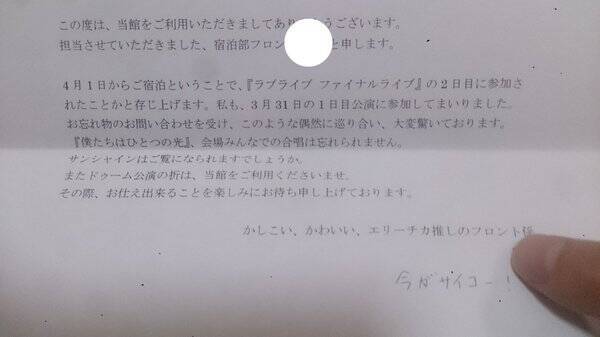 この度は、当館をご利用いただきましてあり うございます。
担当させていただきました、宿泊部フロン と申します。
4月1日からご宿泊ということで、『ラブライブ ファイナルライブ』の2日目に参加さ
れたことかと存じ上げます。私も、3月31日の1日目公演に参加してまいりました。
お忘れ物のお問い合わせを受け、このような偶然に巡り合い、大変驚いております。
『僕たちはひとつの光』、会場みんなでの合唱は忘れられません。
サンシャインはご覧になられますでしょうか。
またドゥーム公演の折は、当館をご利用くださいませ。
その際、お仕え出来ることを楽しみにお待ち申し上げております。
かしこい、かわいい、エリーチカ推しのフロント係
今がサイコー！